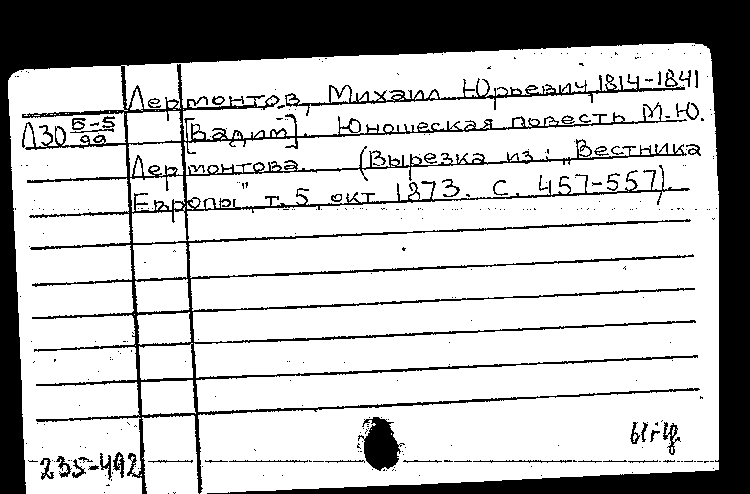 Лермонтов, Михаил Юрьевич, 1814-1841
Л30 Б-5/99
[Вадим]. Юношеская повесть М.Ю.
Лермонтова. (Вырезка из: „Вестника
Европы", т. 5, окт 1873. С. 457-557).
235-492